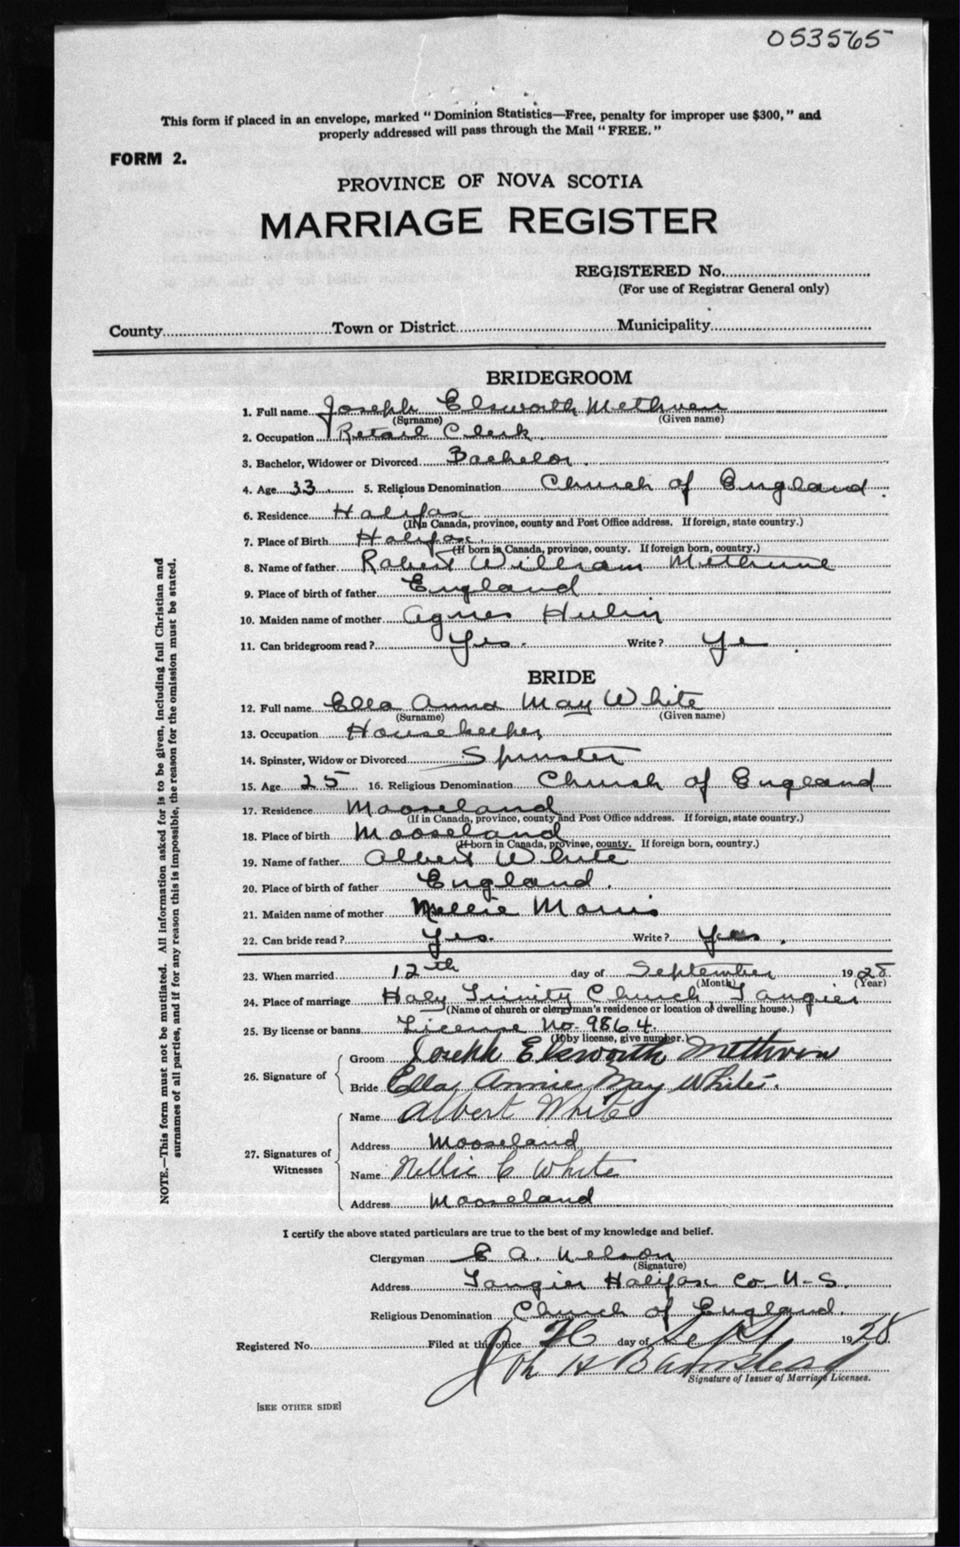 053565
This form if placed in an envelope, marked “Dominion Statistics—Free, penalty for improper use $300,” and
properly addressed will pass through the Mail “FREE.”
FORM 2.
PROVINCE OF NOVA SCOTIA
MARRIAGE REGISTER
REGISTERED No.
(For use of Registrar General only)
County Town or District Municipality
BRIDEGROOM
1. Full name Joseph Elsworth Methven
(Surname) (Given name)
2. Occupation Retail Clerk
3. Bachelor, Widower or Divorced Bachelor.
4. Age 33 5. Religious Denomination Church of England.
6. Residence Halifax
(If in Canada, province, county and Post Office address. If foreign, state country.)
7. Place of Birth Halifax.
(If born in Canada, province, county. If foreign born, country.)
8. Name of father Robert William
9. Place of birth of father England
10. Maiden name of mother Agnes
11. Can bridegroom read? Yes. Write? Ye
BRIDE
12. Full name Ella Anna May White
(Surname) (Given name)
13. Occupation Housekeeper
14. Spinster, Widow or Divorced Spinster
15. Age 25 16. Religious Denomination Church of England
17. Residence Mooseland
(If in Canada, province, county and Post Office address. If foreign, state country.)
18. Place of birth Mooseland
(If born in Canada, province, county. If foreign born, country.)
19. Name of father Albert White
20. Place of birth of father England.
21. Maiden name of mother Nellie
22. Can bride read? Yes. Write? Yes.
23. When married 12th day of September 1928
(Month) (Year)
24. Place of marriage Holy Trinity Church, Tangier
(Name of church or clergyman's residence or location of dwelling house.)
25. By license or banns License No. 9864.
(If by license, give number.)
26. Signature of Groom Joseph Elsworth Methven
Bride Ella Annie May White.
27. Signatures of Witnesses Name Albert White
Address Mooseland
Name Nellie C White
Address Mooseland
NOTE.—This form must not be mutilated. All information asked for is to be given, including full Christian and
surnames of all parties, and if for any reason this is impossible, the reason for the omission must be stated.
I certify the above stated particulars are true to the best of my knowledge and belief.
Clergyman E A. Nelson
(Signature)
Address Tangier Halifax Co N-S.
Religious Denomination Church of England.
Registered No. Filed at this office 26 day of Sept 1928
Signature of Issuer of Marriage Licenses.
[SEE OTHER SIDE]